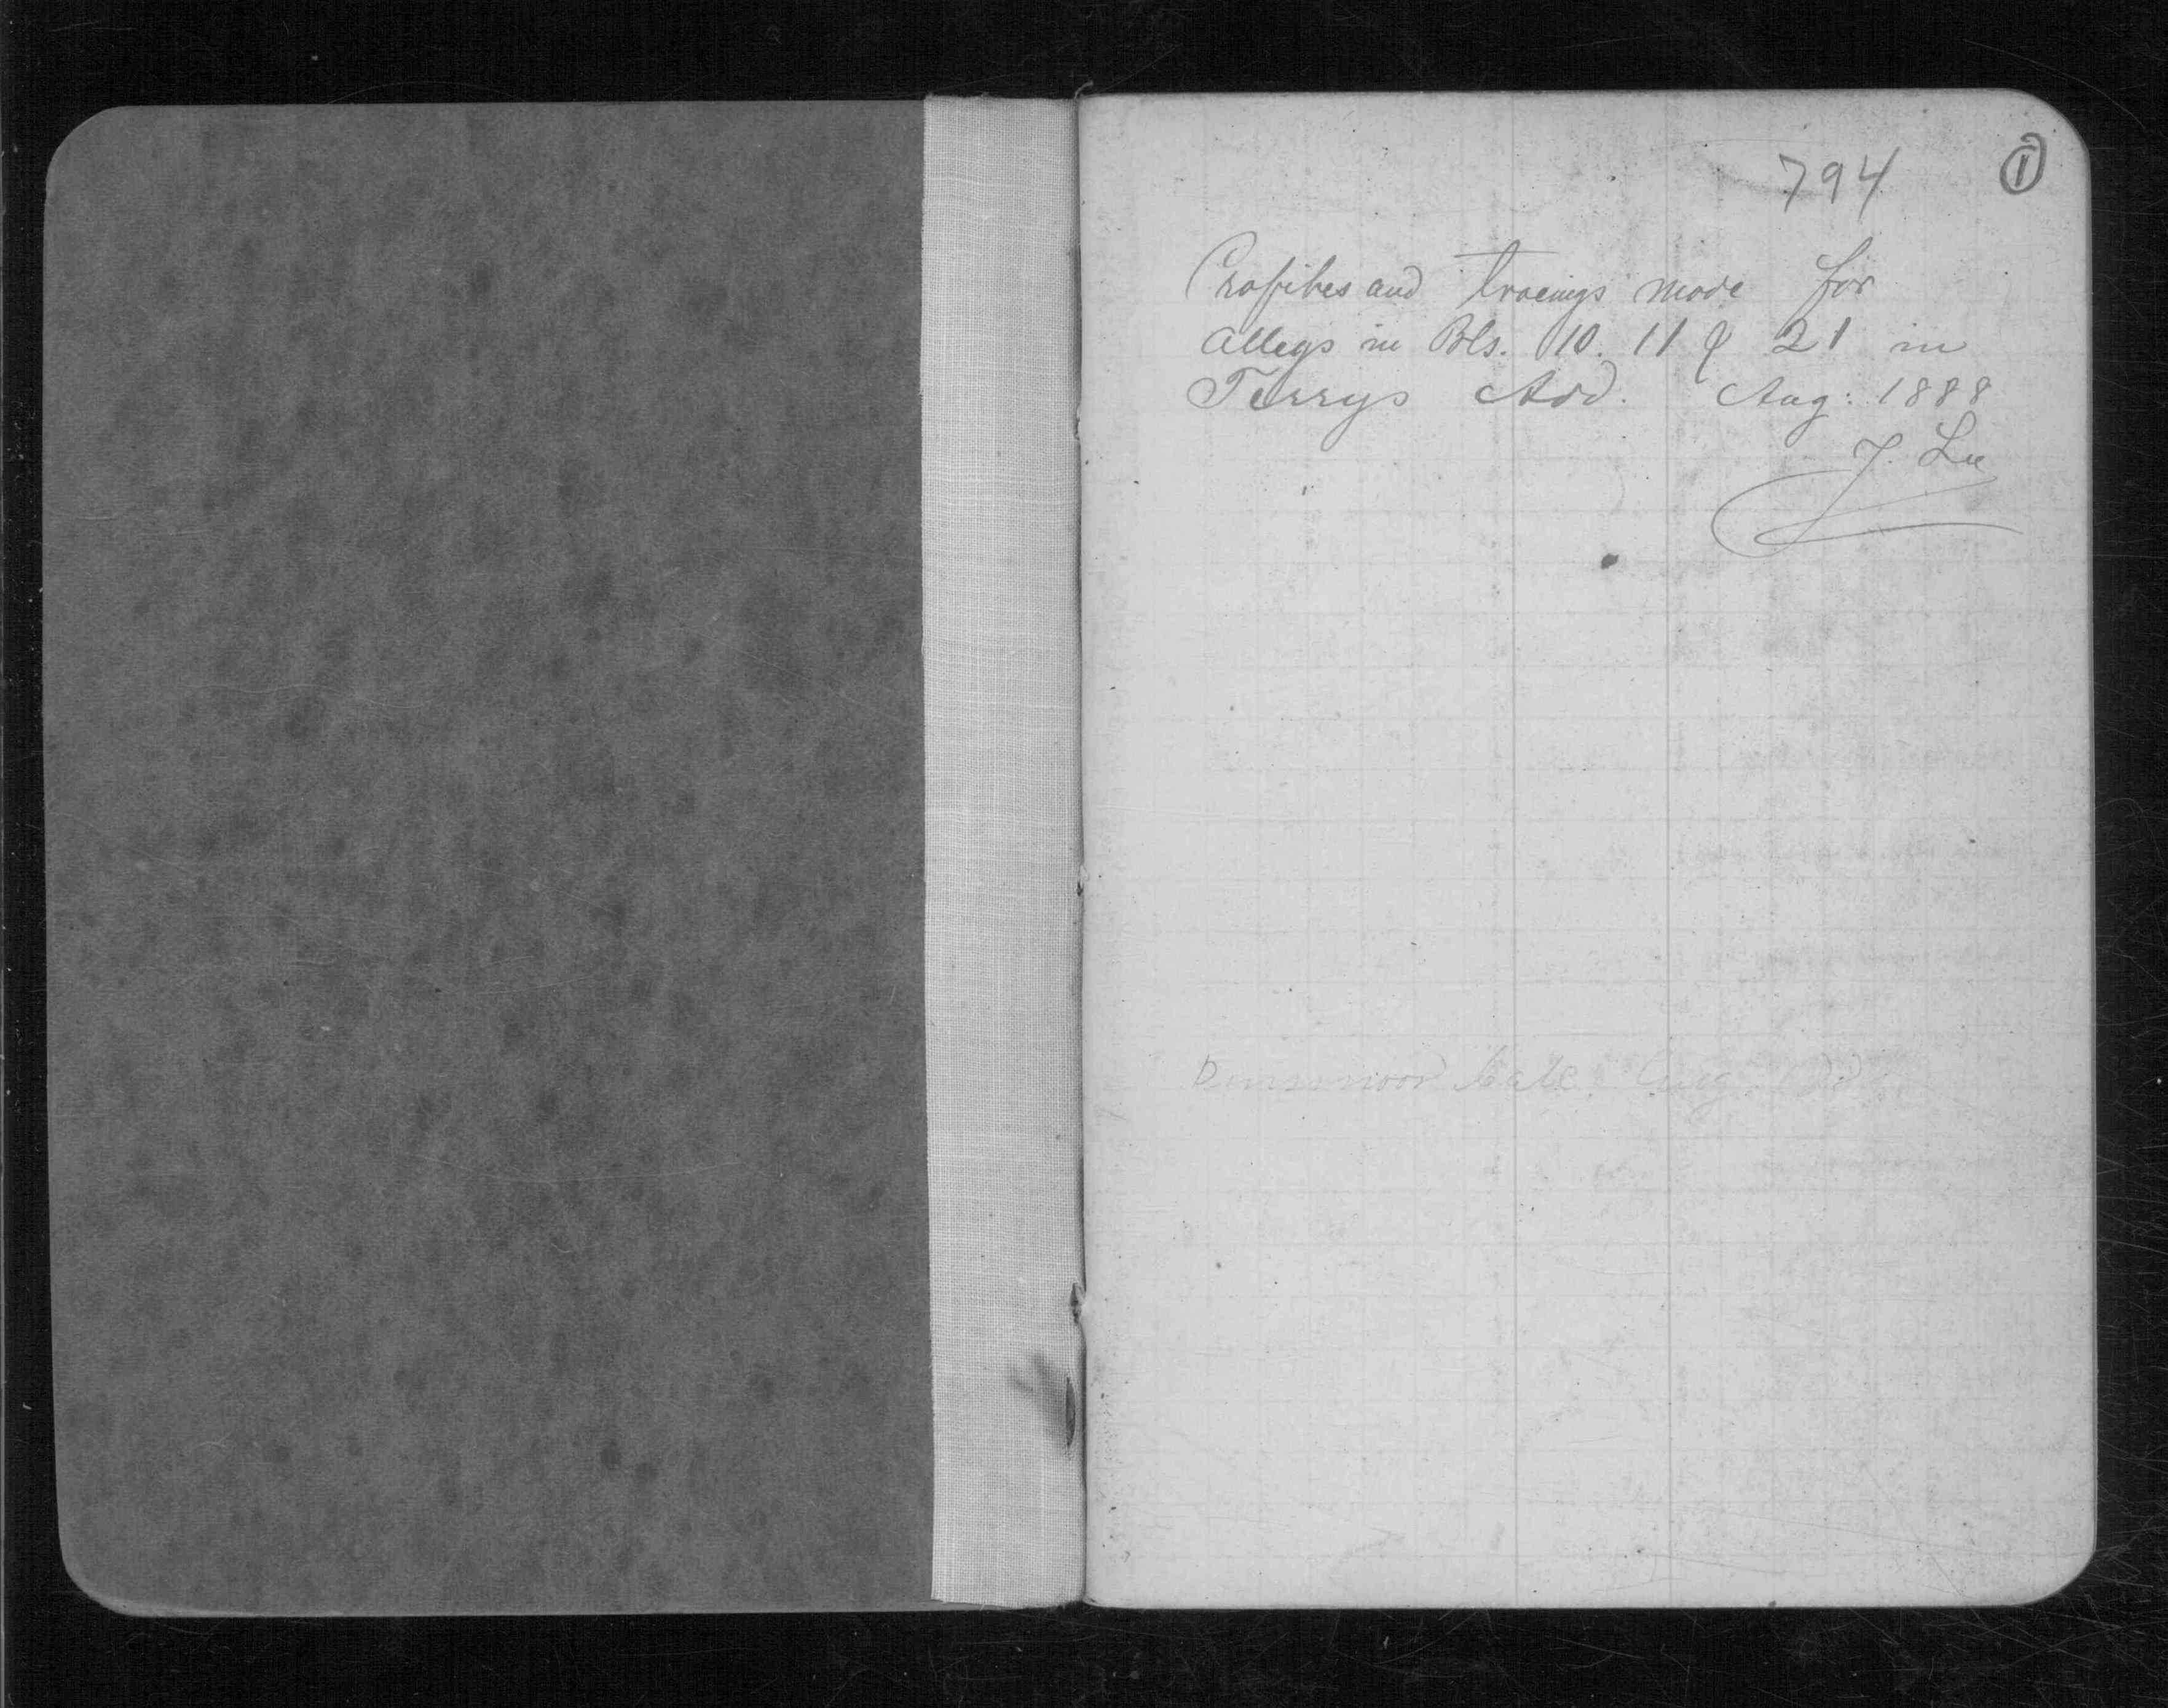 794 1
Profiles and tracings made for
Alleys in Bls. 10. 11 & 21 in
Terrys Add. Aug: 1888
J. Lee